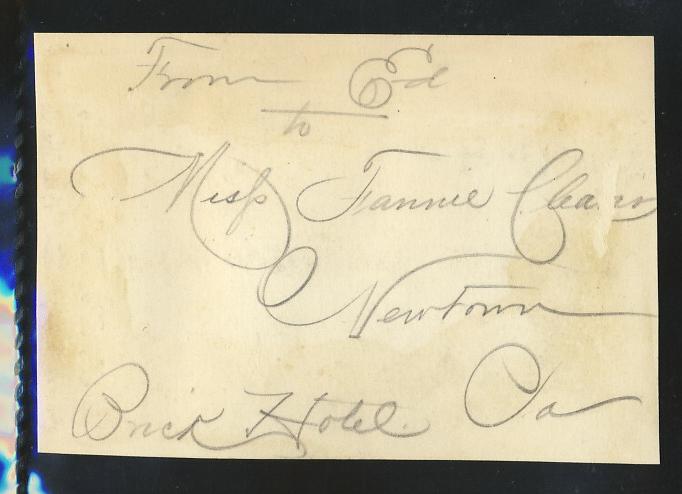 From Ed
to
Miss Fannie
Newtown
Brick Hotel. Pa